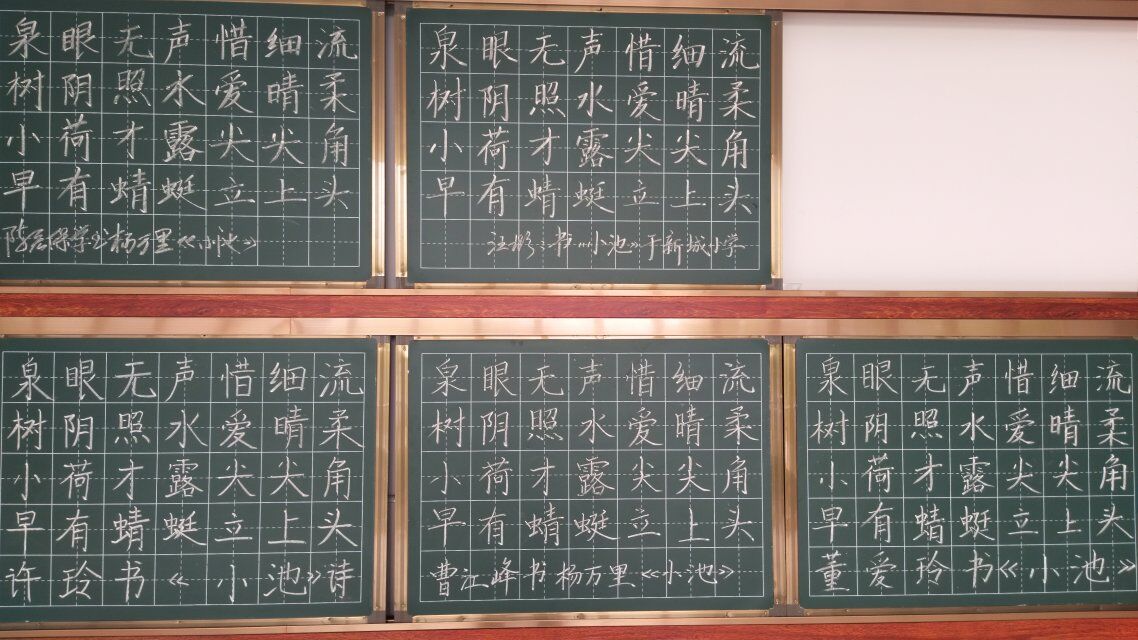 泉眼无声惜细流
树阴照水爱晴柔
小荷才露尖尖角
早有蜻蜓立上头
杨万里《小池》
泉眼无声惜细流
树阴照水爱晴柔
小荷才露尖尖角
早有蜻蜓立上头
书《小池》于新城小学
泉眼无声惜细流
树阴照水爱晴柔
小荷才露尖尖角
早有蜻蜓立上头
许玲书《小池》诗
泉眼无声惜细流
树阴照水爱晴柔
小荷才露尖尖角
早有蜻蜓立上头
曹江峰书杨万里《小池》
泉眼无声惜细流
树阴照水爱晴柔
小荷才露尖尖角
早有蜻蜓立上头
董爱玲书《小池》